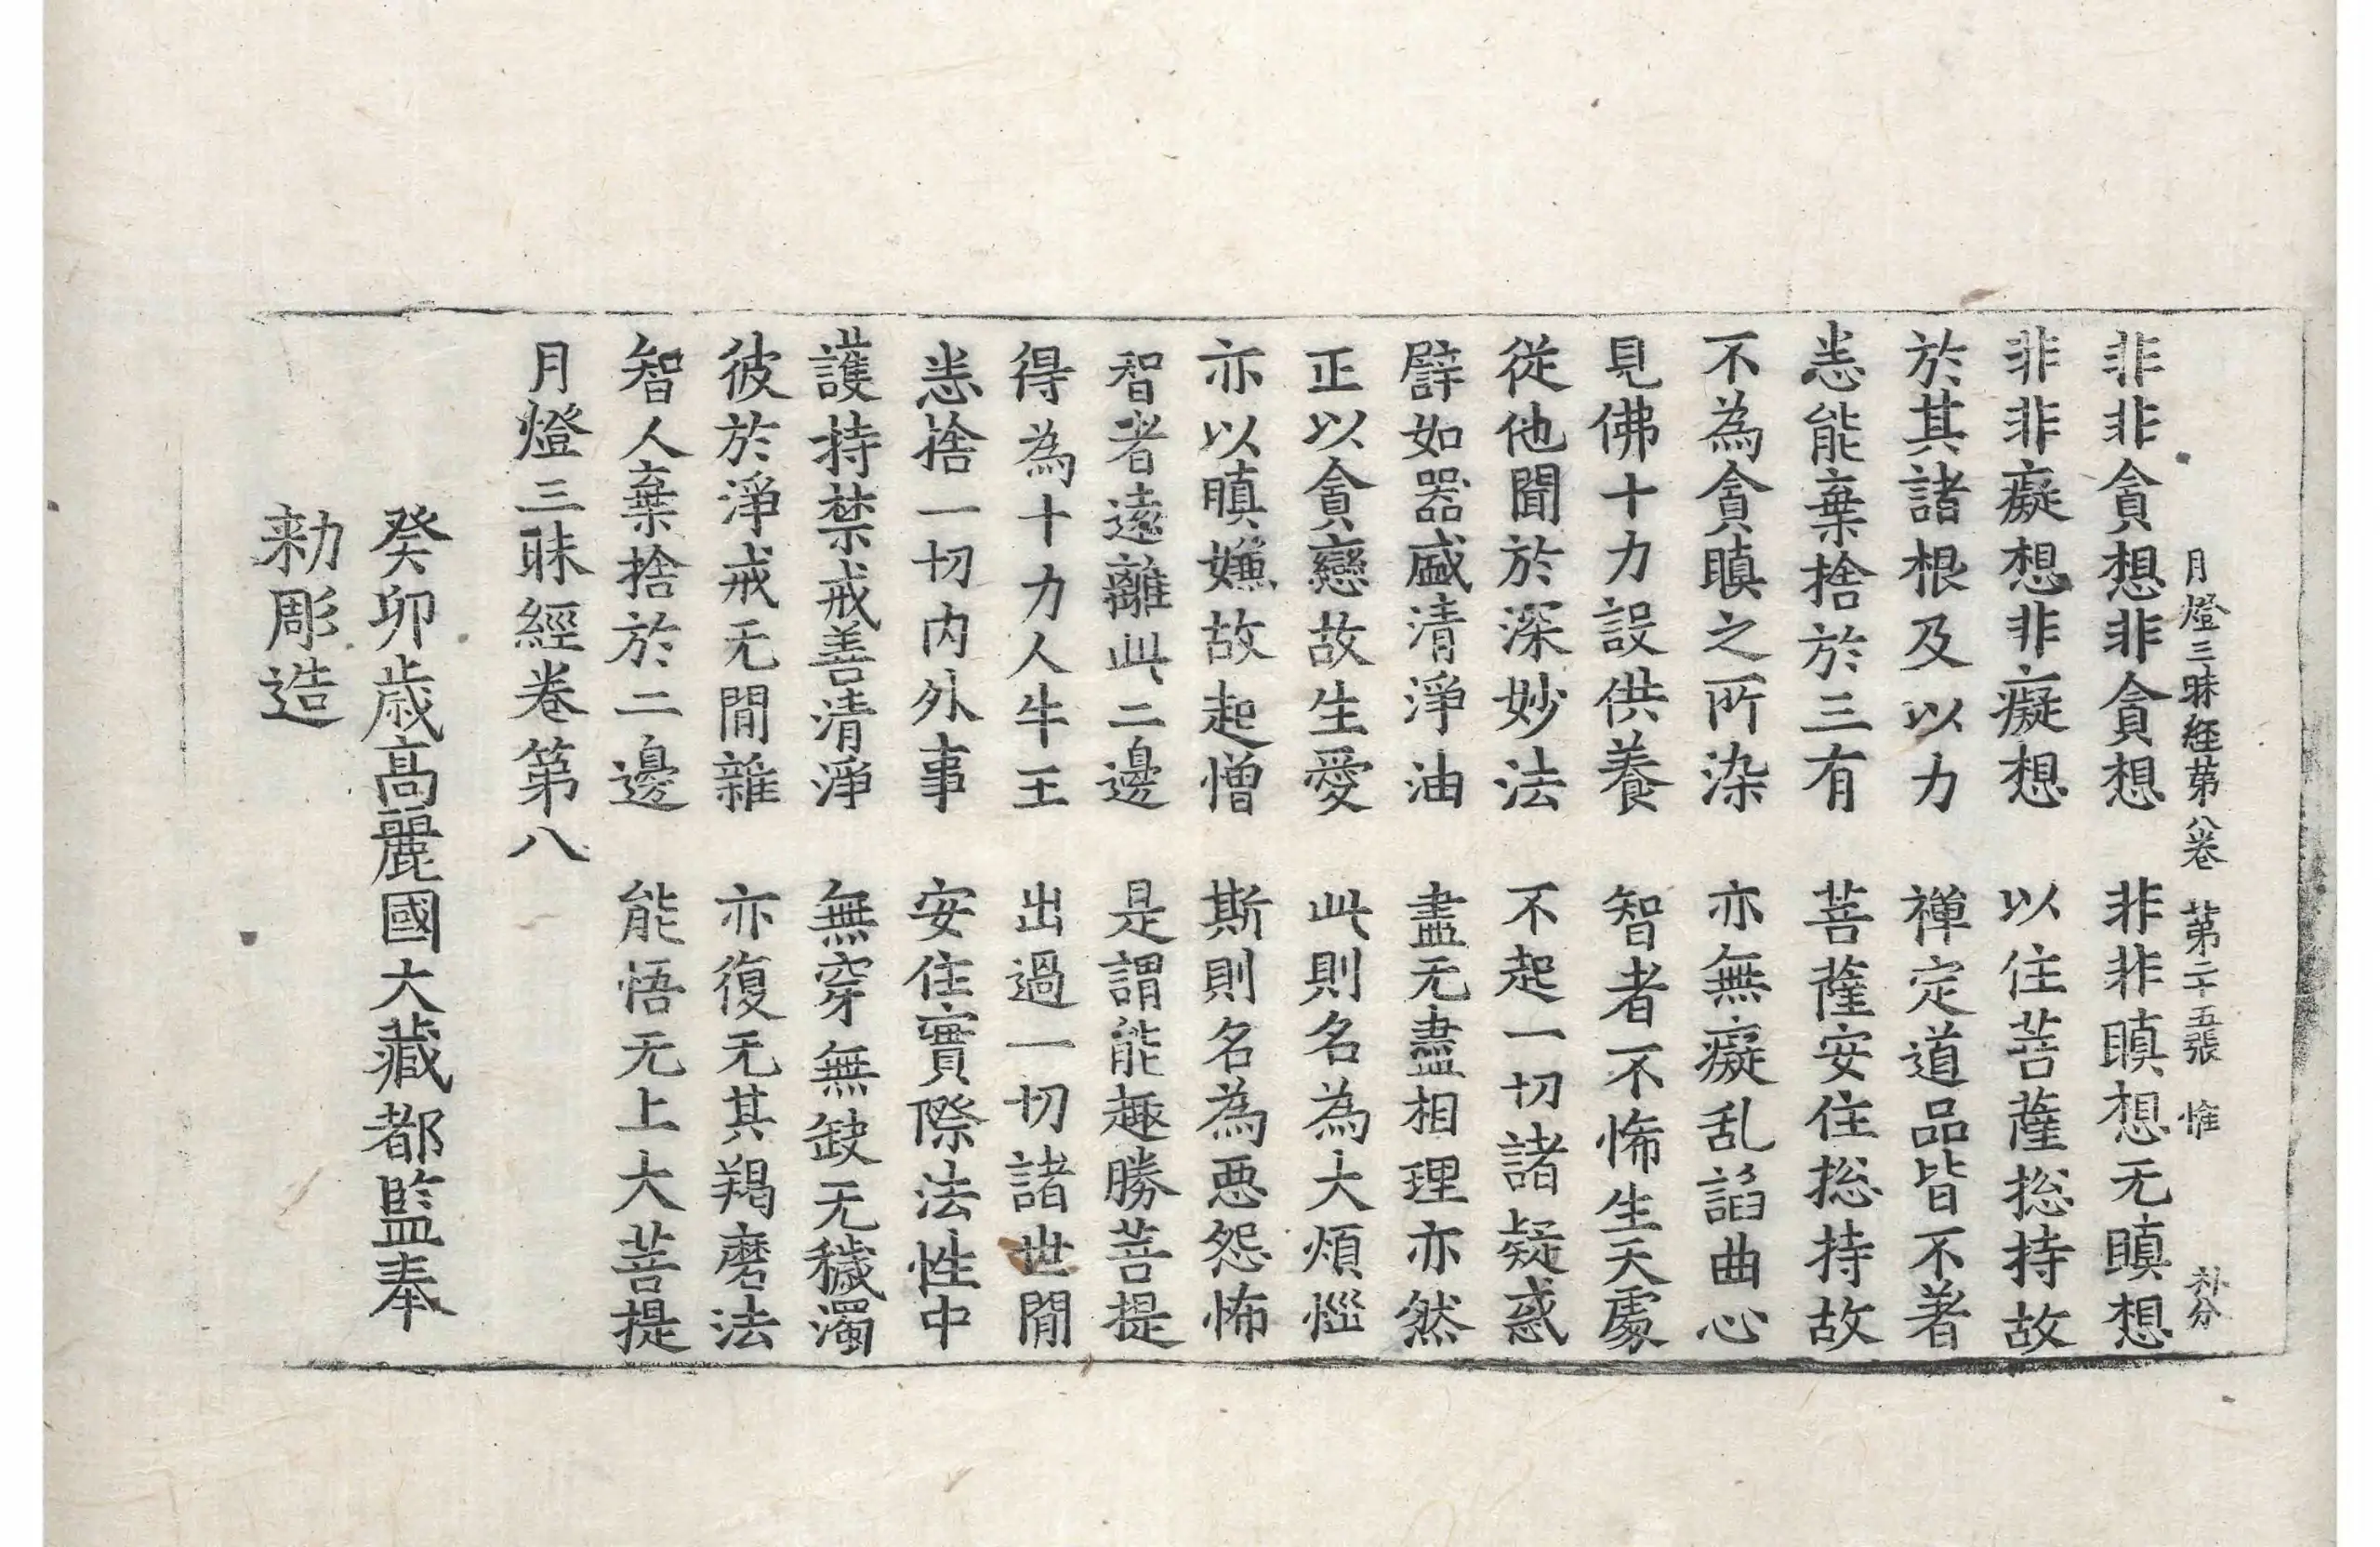 月燈三昧経苐八卷 苐二十五張 惟 朴分
非非貪想非貪想 非非瞋想无瞋想
非非癡想非癡想 以住菩薩捴持故
於其諸根及以力 禅定道品皆不著
悉能棄捨於三有 菩薩安住捴持故
不為貪瞋之所染 亦無癡乱諂曲心
見佛十力設供養 智者不怖生天處
従他聞於深妙法 不起一切諸疑惑
譬如器盛清淨油 盡无盡相理亦然
正以貪戀故生愛 此則名為大煩惱
亦以瞋嫌故起憎 斯則名為悪怨怖
智者遠離此二邊 是謂能趣勝菩提
得為十力人牛王 出過一切諸世閒
悉捨一切内外事 安住實際法性中
護持禁戒善清淨 無穿無缺无穢濁
彼於淨戒无閒雜 亦復无其羯磨法
智人棄捨於二邊 能悟无上大菩提
月燈三昧經卷第八
癸卯歳髙麗國大藏都監奉
勑彫造